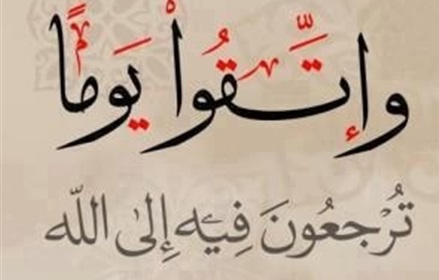 وإتَّقُواْ يَوماً
تُرْجَعُونَ فِيهِ إِلىٰ اللّه